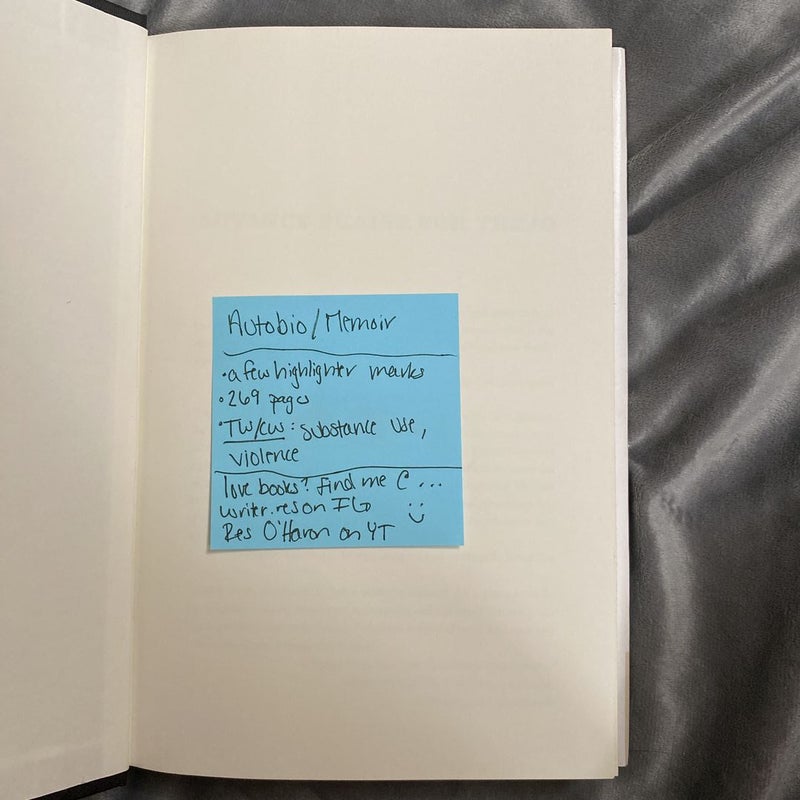 Autobio/Memoir
• a few highlighter marks
• 269 pages
• TW/CW: substance use,
violence
love books? find me @ ...
writer.res on IG :)
Res O'Haron on YT